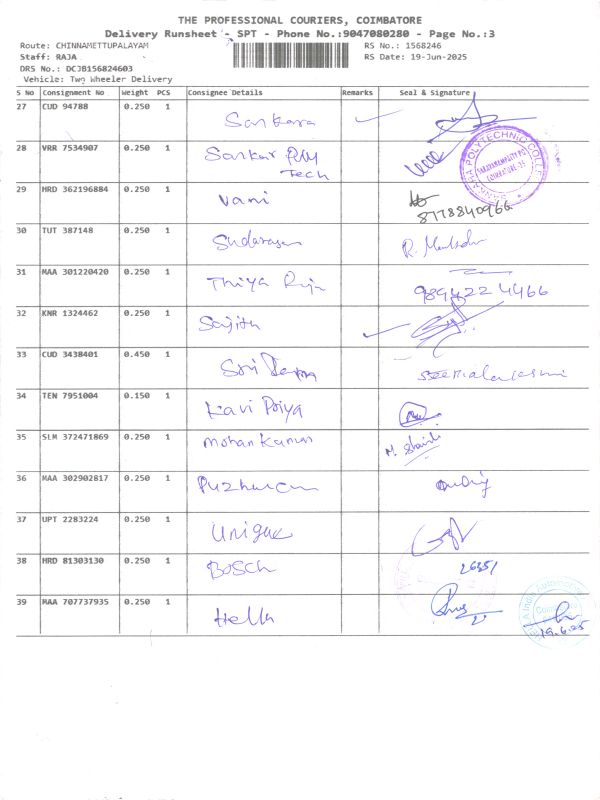 THE PROFESSIONAL COURIERS, COIMBATORE
Delivery Runsheet - SPT - Phone No.:9047080280 - Page No.:3
Route: CHINNAMETTUPALAYAM RS No.: 1568246
Staff: RAJA RS Date: 19-Jun-2025
DRS No.: DCJB156824603
Vehicle: Two Wheeler Delivery
S No Consignment No Weight PCS Consignee Details Remarks Seal & Signature
27 CUD 94788 0.250 1 Sankara
28 VRR 7534907 0.250 1 Sankar Poly
Tech
29 HRD 362196884 0.250 1 Vani
8778840966
30 TUT 387148 0.250 1 Sudarasan
31 MAA 301220420 0.250 1 Thiya
9894224466
32 KNR 1324462 0.250 1 Sajith
33 CUD 3438401 0.450 1 Sri
34 TEN 7951004 0.150 1 Kavi Priya
35 SLM 372471869 0.250 1 Mohan Kumar
36 MAA 302902817 0.250 1
37 UPT 2283224 0.250 1 Unique
38 HRD 81303130 0.250 1 Bosch
26351
39 MAA 707737935 0.250 1 Hella
19.6.25